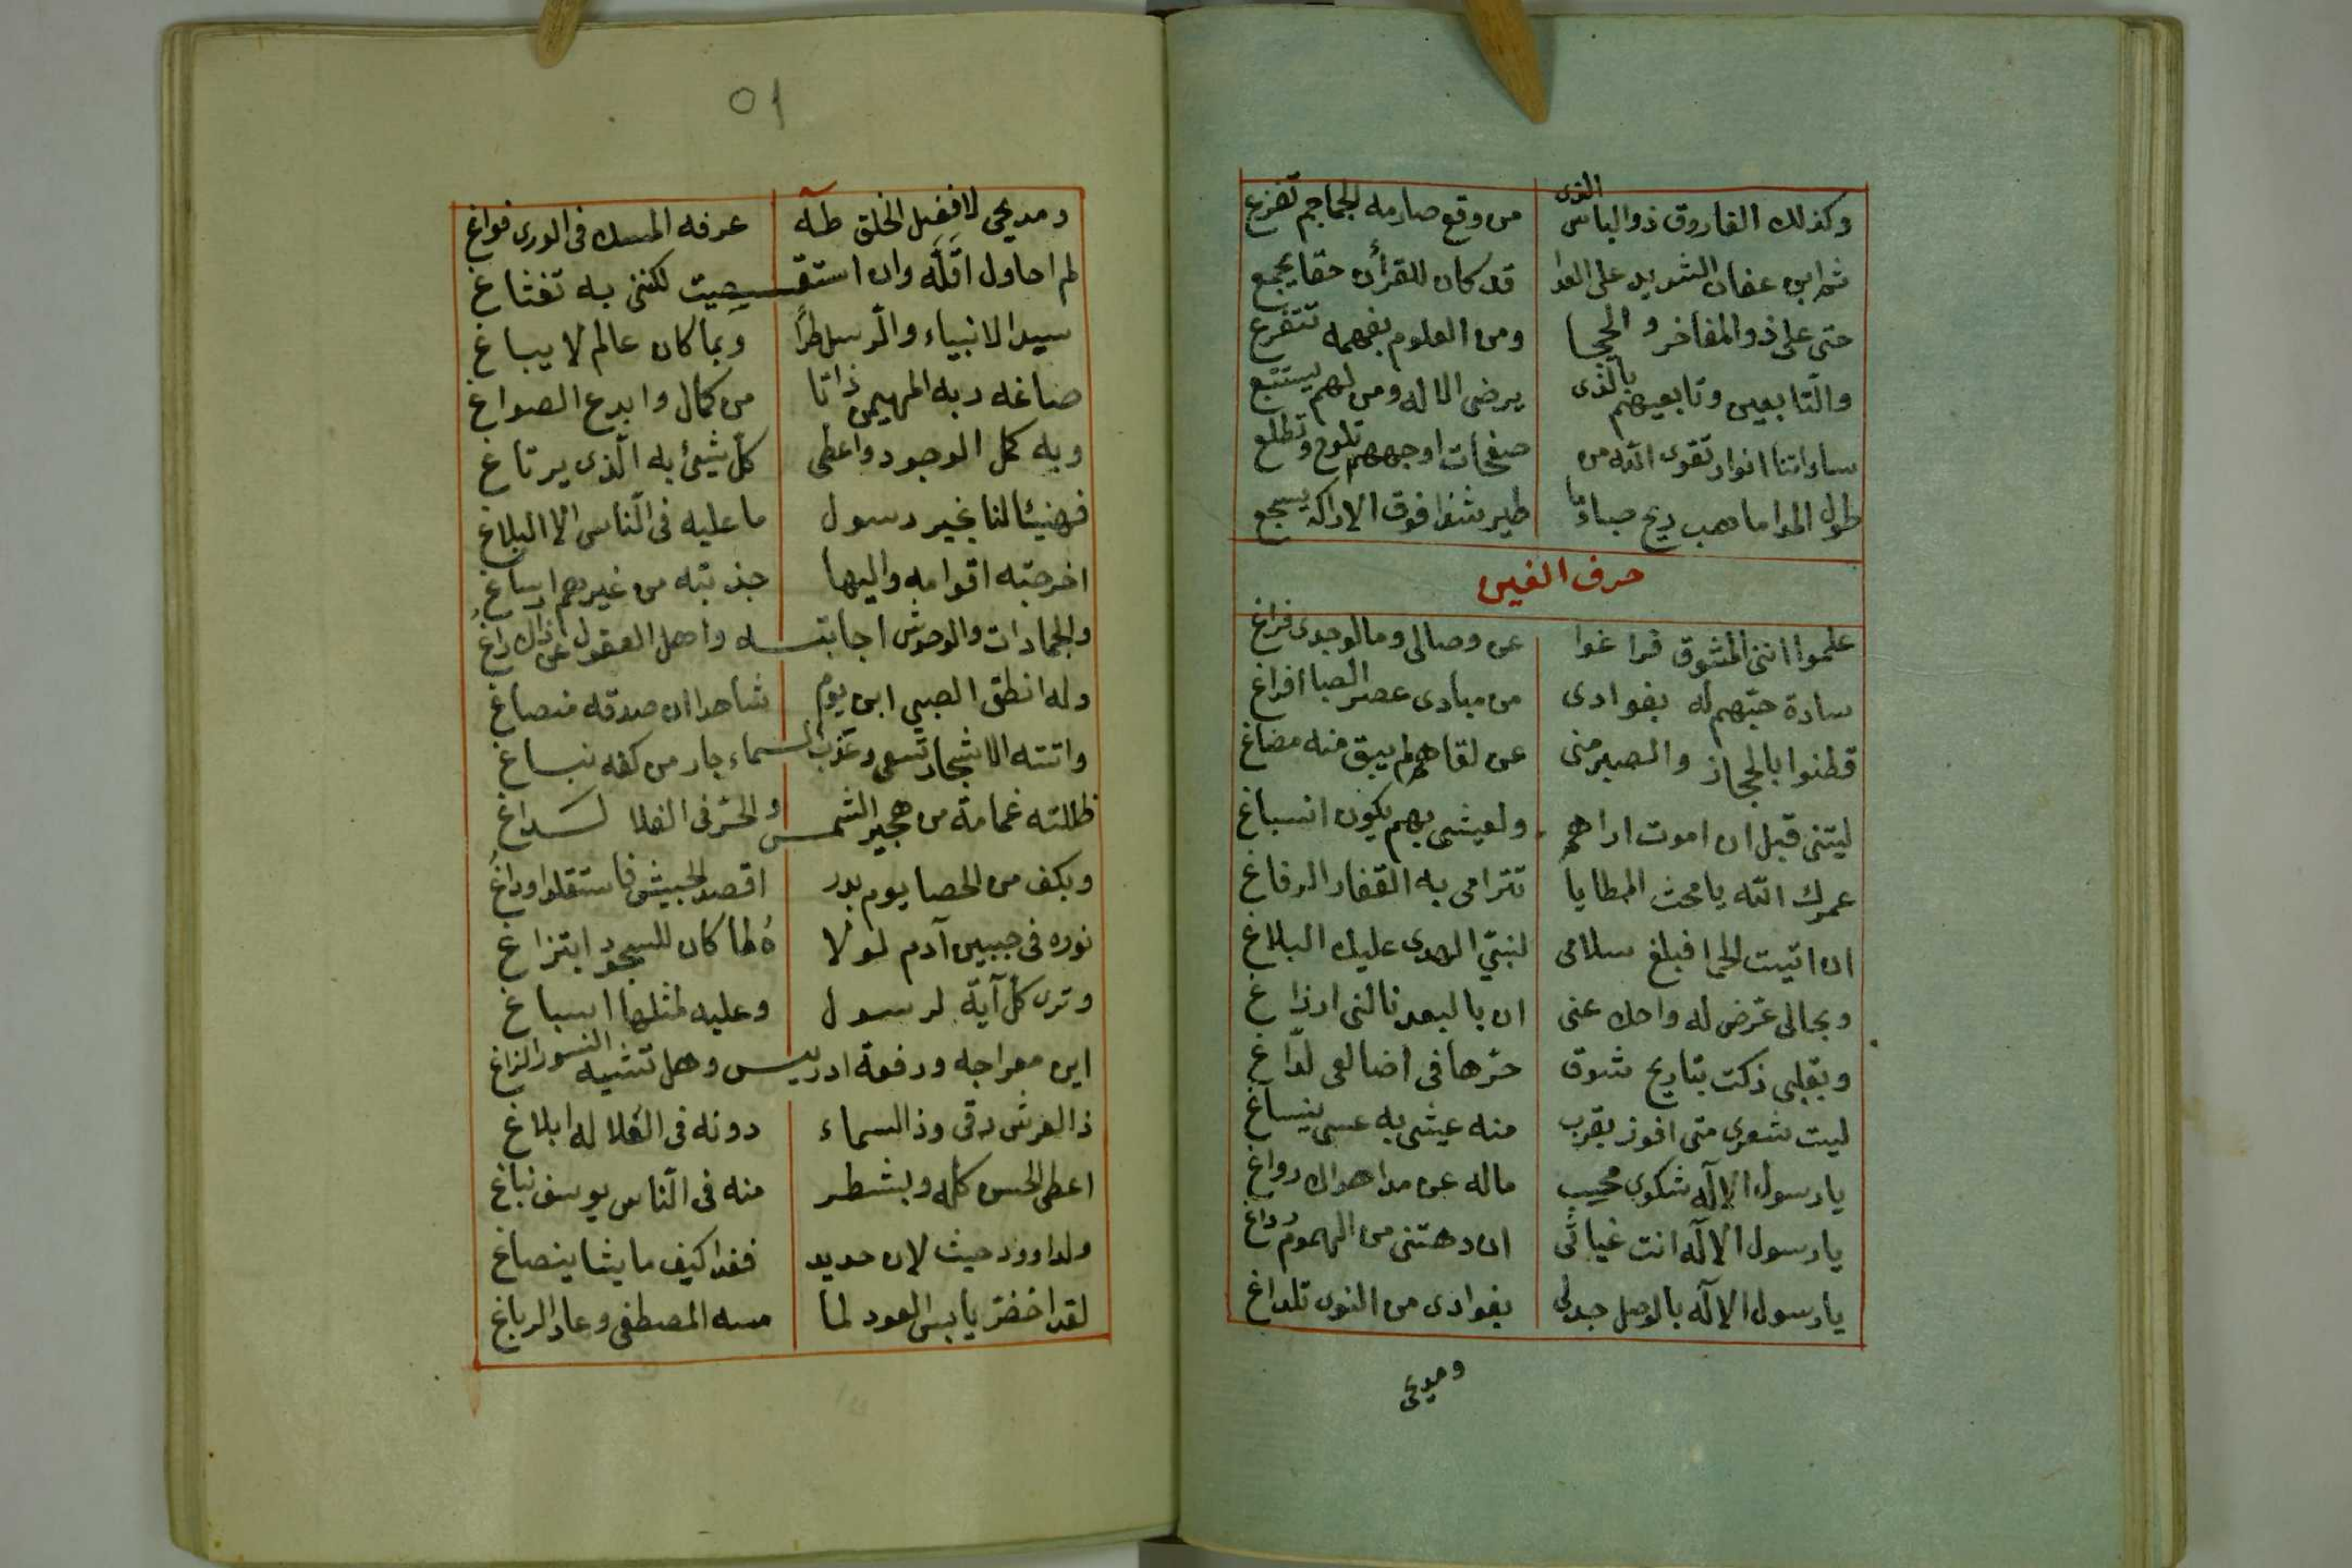 وكذلك الفاروق ذو الباس الذى من وقع صارمه الجماجم تفزع
ثم ابن عفان الشديد على العدا قد كان للقرأن حقا يجمع
حتى على ذو المفاخر والحجا ومن العلوم بفهمه تتفرع
والتابعين وتابعيهم بالذى يرضى الاله ومن لهم يستتبع
ساداتنا انوار تقوى الله من صفحات اوجههم تلوح وتطلع
طول المدا ما هب ريح صبا وما طير شدا فوق الاراك يسجع
حرف الغين
علموا اننى المشوق فراغوا عن وصالى وما لوجدى فراغ
سادة حبّهم له بفوادى من مبادى عصر الصبا افراغ
قطنوا بالحجاز والصبر منى عن لقاهم لم يبق منه مضاغ
ليتنى قبل ان اموت اراهم ولعيشى بهم يكون انسباغ
عمرك الله يا محث المطايا تترامى به القفار الرفاغ
ان اتيت الحما فبلغ سلامى لنبيّ الهدى عليك البلاغ
وبحالى عرّض له واحك عنى ان بالبعد نالنى ارزاغ
وبقلبى ذكت تباريح شوق حرّها فى اضالعى لدّاغ
ليت شعرى متى افوز بقرب منه عيشى به عسى ينساغ
يا رسول الاله شكوى محب ماله عن مدا هواك رواغ
يا رسول الاله انت غياثى ان دهتنى من الهموم رداغ
يا رسول الاله بالوصل جد لى بفوادى من النوى تلداغ
ومديحى
٥١
ومديحى لافضل الخلق طه عرفه المسك فى الورى فواغ
لم احاول اقلّه وان استقصيت لكننى به تغثاغ
سيد الانبياء والرسل طرًا وبما كان عالم لا يباغ
صاغه ربه المهيمن ذاتا من كمال وابدع الصواغ
وبه كمل الوجود واعطى كل شيئ به الّذى يرتاغ
فهنيئا لنا بخير رسول ما عليه فى الناس الا البلاغ
اخرجته اقوامه واليها جذبته من غيرهم ارساغ
والجمادات والوحوش اجابته واهل العقول عن ذاك زاغوا
وله انطق الصبي ابن يوم شاهدا ان صدقه منصاغ
واتته الاشجار تسعى وعذب الماء جار من كفه نباغ
ظللته غمامة من هجير الشمس والحرّ فى الفلا لسداغ
وبكف من الحصا يوم بدر اقصد الجيش فاستقلوا وراغوا
نوره فى جبين آدم لولا ه لما كان للسجود ابتزاغ
وترى كل آية لرسول وعليه لمثلها اسباغ
اين معراجه ورفعة ادريس وهل تشبه النسور الزاغ
ذا لعرش رقى وذا لسماء دونه فى العلا له ابلاغ
اعطى الحسن كله وبشطر منه فى الناس يوسف نباغ
ولداوود حيث لان حديد فغدا كيف ما يشا ينصاغ
لقد اخضرّ يابس العود لما مسه المصطفى وعاد الرباغ